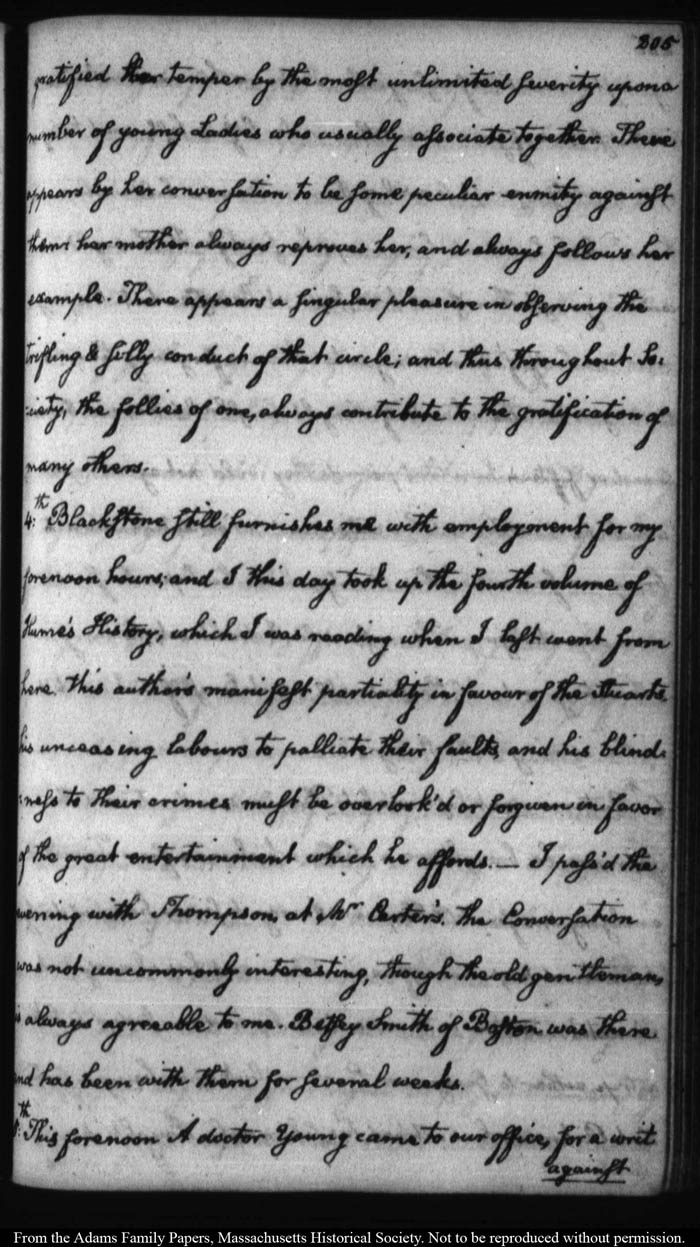 305
gratified her temper by the most unlimited severity upon a
number of young Ladies who usually associate together. There
appears by her conversation to be some peculiar enmity against
them: her mother always reproves her, and always follows her
example. There appears a singular pleasure in observing the
trifling & silly conduct of that circle; and thus throughout So:
ciety, the follies of one, always contribute to the gratification of
many others.
4:th Blackstone still furnishes me with employment for my
forenoon hours; and I this day took up the fourth volume of
Hume's History, which I was reading when I last went from
here. This author's manifest partiality in favour of the Stuarts,
his unceasing labours to palliate their faults, and his blind:
:ness to their crimes must be overlook'd or forgiven in favor
of the great entertainment which he affords. — I pass'd the
evening with Thompson, at Mr Carter's. The Conversation
was not uncommonly interesting, though the old gentleman,
is always agreeable to me. Betsey Smith of Boston was there
and has been with them for several weeks.
th This forenoon A doctor Young came to our office, for a writ
against
From the Adams Family Papers, Massachusetts Historical Society. Not to be reproduced without permission.